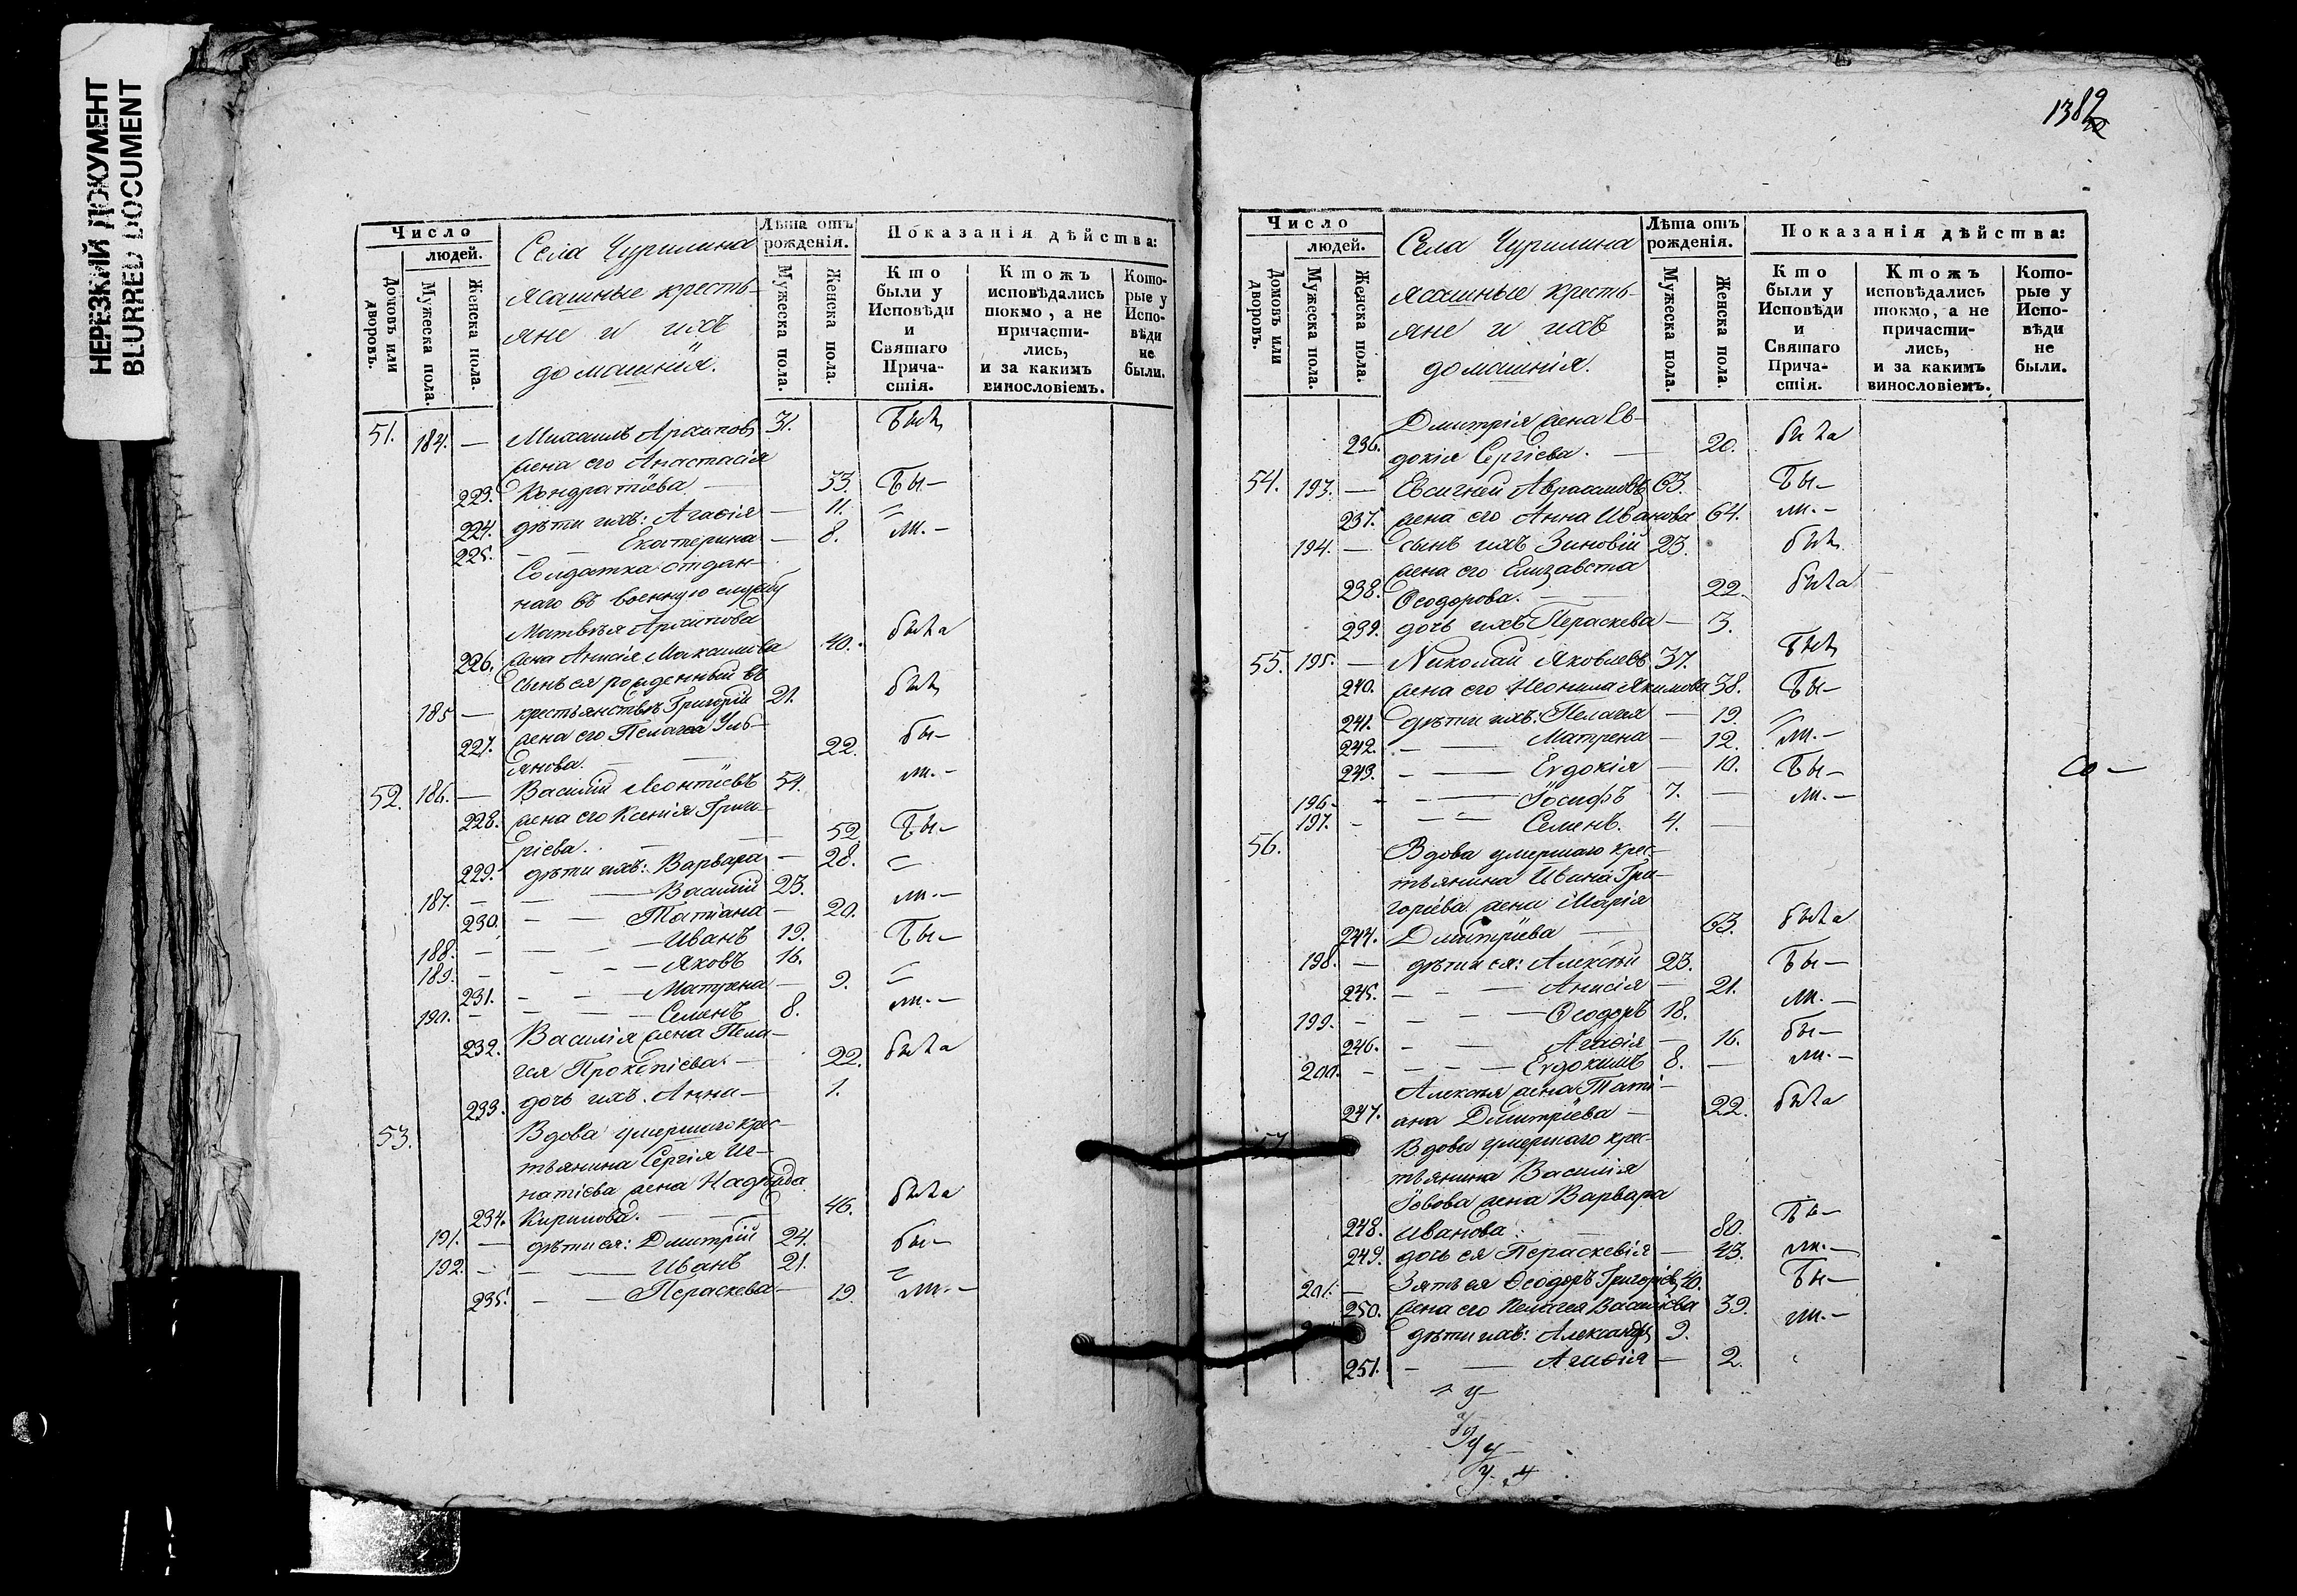 НЕРЕЗКИЙ ДОКУМЕНТ
BLURRED DOCUMENT
Число
людей.
Домовъ или дворовъ.
Мужеска пола.
Женска пола.
Села Чурилина
ясашные кресть-
яне и ихъ
домашнія.
Лѣта отъ рожденія.
Мужеска пола.
Женска пола.
Показанія дѣйства:
Кто были у Исповѣди и Святаго Прича-стія.
Ктожъ исповѣдались токмо, а не причасти-лись, и за какимъ винословіемъ.
Кото-рые у Испо-вѣди не были.
51. 184. — Михаилъ Архиповъ 31. Былъ
жена его Анастасія
223. Кондратіева — 33. Бы—
224. дѣти ихъ: Агафія — 11. =
225. — — Екатерина — 8. ли.—
Солдатка отдан-
наго въ военную службу
Матвѣя Архипова
226. жена Анисія Максимова 40. была
сынъ ея рожденный въ
185 — крестьянствѣ Григорій 21. былъ
227. жена его Пелагея Уль-
янова. — 22. бы—
52. 186. — Василій Леонтіевъ 54. ли.—
228. жена его Ксенія Григо-
ріева. — 52. Бы—
229. дѣти ихъ: Варвара — 28. =
187. — — Василій 23.
230. — — Татіана — 20. ли.—
188. — — Иванъ 19. Бы—
189. — — Яковъ 16.
231. — — Матрена — 9. =
190. — — Семенъ 8. ли.—
232. Василія жена Пела-
гея Прокопіева — 22. была
233. дочь ихъ Анна — 1.
53. Вдова умершаго крес-
тьянина Сергія Иг-
натіева жена Надежда
234. Кирилова. — 46. была
191. — дѣти ея: Дмитрій 24. бы—
192. — — Иванъ 21. =
235. — — Пераскева — 19. ли.—
1382
Число
людей.
Домовъ или дворовъ.
Мужеска пола.
Женска пола.
Села Чурилина
ясашные кресть-
яне и ихъ
домашнія.
Лѣта отъ рожденія.
Мужеска пола.
Женска пола.
Показанія дѣйства:
Кто были у Исповѣди и Святаго Прича-стія.
Ктожъ исповѣдались токмо, а не причасти-лись, и за какимъ винословіемъ.
Кото-рые у Испо-вѣди не были.
Дмитрія жена Ев-
236. докія Сергіева. — 20. была
54. 193. — Евсигней Авраамовъ 63. Бы—
237. жена его Анна Иванова 64. ли.—
194. — сынъ ихъ Зиновій 23. былъ
жена его Елизавета
238. Ѳеодорова. — 22. была
239. дочь ихъ Пераскева — 3.
55. 195. — Николай Яковлевъ 37. Былъ
240. жена его Неонила Якимова 38. Бы—
241. дѣти ихъ: Пелагея — 19. =
242. — — Матрена — 12. ли.—
243. — — Евдокія — 10. Бы—
196. — — Іосифъ 7. — ли.—
197. — — Семенъ. 4. —
56. Вдова умершаго крес-
тьянина Ивана Гри-
горіева жена Марія
244. Дмитріева — 63. была
198. — дѣти ея: Алексѣй 23. Бы—
245. — — Анисія — 21. ли.—
199. — — Ѳеодоръ 18.
246. — — Агафія — 16. бы—
200. — — Евдокимъ 8. — ли.—
Алексѣя жена Тати-
247. ана Дмитріева — 22. была
57. Вдова умершаго крес-
тьянина Василія
Іовова жена Варвара
248. Иванова: 80. Бы—
249. дочь ея Пераскевія — 43. ли.—
201. — Зять ея Ѳеодоръ Григорьевъ 40. Бы—
250. жена его Пелагея Васильева 39. ли.—
дѣти ихъ: Александръ 9.
251. — — Агафія — 2.